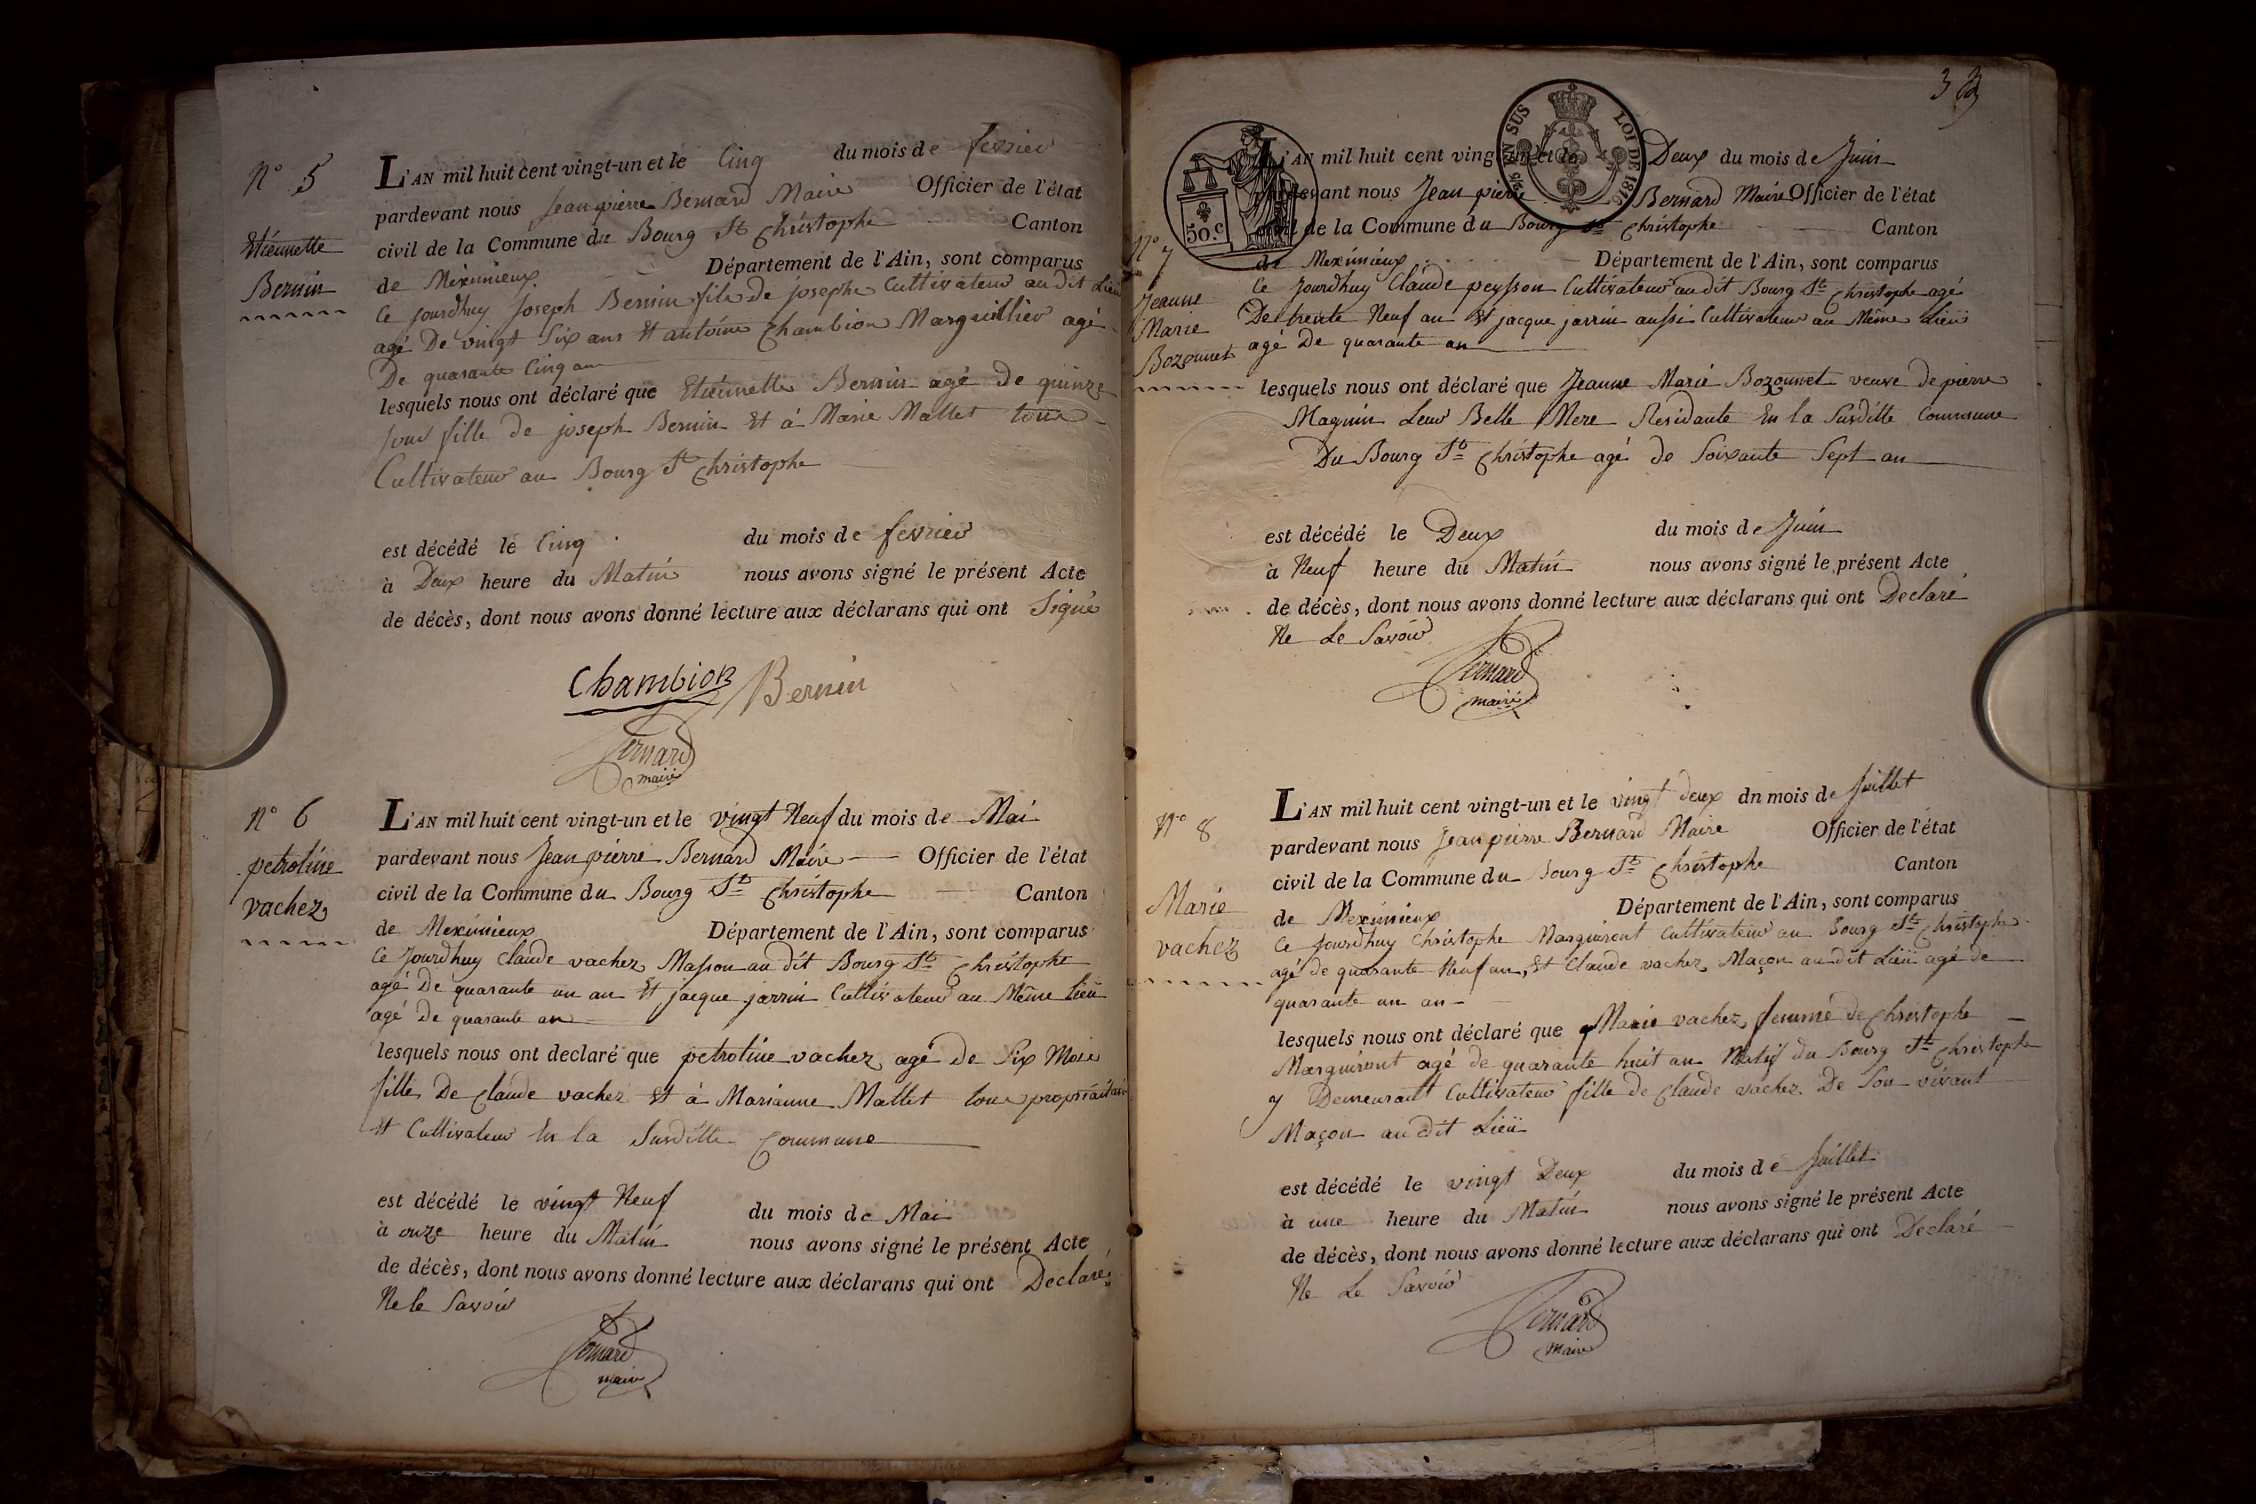 N° 5
Etiennette
Bernin
L'AN mil huit cent vingt-un et le Cinq du mois de fevrier
pardevant nous Jean pierre Bernard Maire Officier de l'état
civil de la Commune du Bourg St Christophe Canton
de Meximieux Département de l'Ain, sont comparus
Ce jourdhuy Joseph Bernin fils de josephe Cultivateur audit Lieu
agé De vingt Six ans Et antoine Chambion Marguillier agé
De quarante Cinq an
lesquels nous ont déclaré que Etiennette Bernin agé de quinze
jour fille de joseph Bernin Et à Marie Mallet tous
Cultivateur au Bourg St Christophe
est décédé le Cinq du mois de fevrier
à Deux heure du Matin nous avons signé le présent Acte
de décès, dont nous avons donné lecture aux déclarans qui ont Signé
Chambion Bernin
Bernard
maire
N° 6
petroline
vachez
L'AN mil huit cent vingt-un et le vingt Neuf du mois de Mai
pardevant nous Jean pierre Bernard Maire Officier de l'état
civil de la Commune du Bourg St Christophe Canton
de Meximieux Département de l'Ain, sont comparus
Ce jourdhuy Claude vachez Masson au dit Bourg St Christophe
agé De quarante un an Et jacque jarrin Cultivateur au Même lieu
agé De quarante an
lesquels nous ont declaré que petroline vachez agé de Six Mois
fille De Claude vachez Et à Marianne Mallet tous propriaitair
Et Cultivateur En la Susditte Commune
est décédé le vingt Neuf du mois de Mai
à onze heure du Matin nous avons signé le présent Acte
de décès, dont nous avons donné lecture aux déclarans qui ont Declaré
Ne le Savoir
Bernard
maire
33
EN SUS LOI DE 1816
50.c
N° 7
Jeanne
Marie
Bozonnet
L'AN mil huit cent vingt-un et le Deux du mois de Juin
pardevant nous Jean pierre Bernard Maire Officier de l'état
civil de la Commune du Bourg St Christophe Canton
de Meximieux Département de l'Ain, sont comparus
Ce Jourdhuy Claude peysson Cultivateur au dit Bourg St Christophe agé
De trente Neuf an Et jacque jarrin aussi Cultivateur au Même Lieu
agé De quarante an
lesquels nous ont déclaré que Jeanne Marie Bozonnet veuve de pierre
Magnin Leur Belle Mere Residante En la Susditte Commune
Du Bourg St Christophe agé de Soixante Sept an
est décédé le Deux du mois de Juin
à Neuf heure du Matin nous avons signé le présent Acte
de décès, dont nous avons donné lecture aux déclarans qui ont Declaré
Ne Le Savoir
Bernard
maire
N° 8
Marie
vachez
L'AN mil huit cent vingt-un et le vingt deux dn mois de Juillet
pardevant nous Jean pierre Bernard Maire Officier de l'état
civil de la Commune du Bourg St Christophe Canton
de Meximieux Département de l'Ain, sont comparus
Ce Jourdhuy Christophe Marguiront Cultivateur au Bourg St Christophe
agé de quarante Neuf an, Et Claude vachez Maçon au dit Lieu agé de
quarante un an
lesquels nous ont déclaré que Marie vachez femme de Christophe
Marguiront agé de quarante huit an Natif du Bourg St Christophe
y Demeurant Cultivateur fille de Claude vachez De Son vivant
Maçon au dit Lieu
est décédé le vingt Deux du mois de Juillet
à une heure du Matin nous avons signé le présent Acte
de décès, dont nous avons donné lecture aux déclarans qui ont Declaré
Ne Le Savoir
Bernard
maire